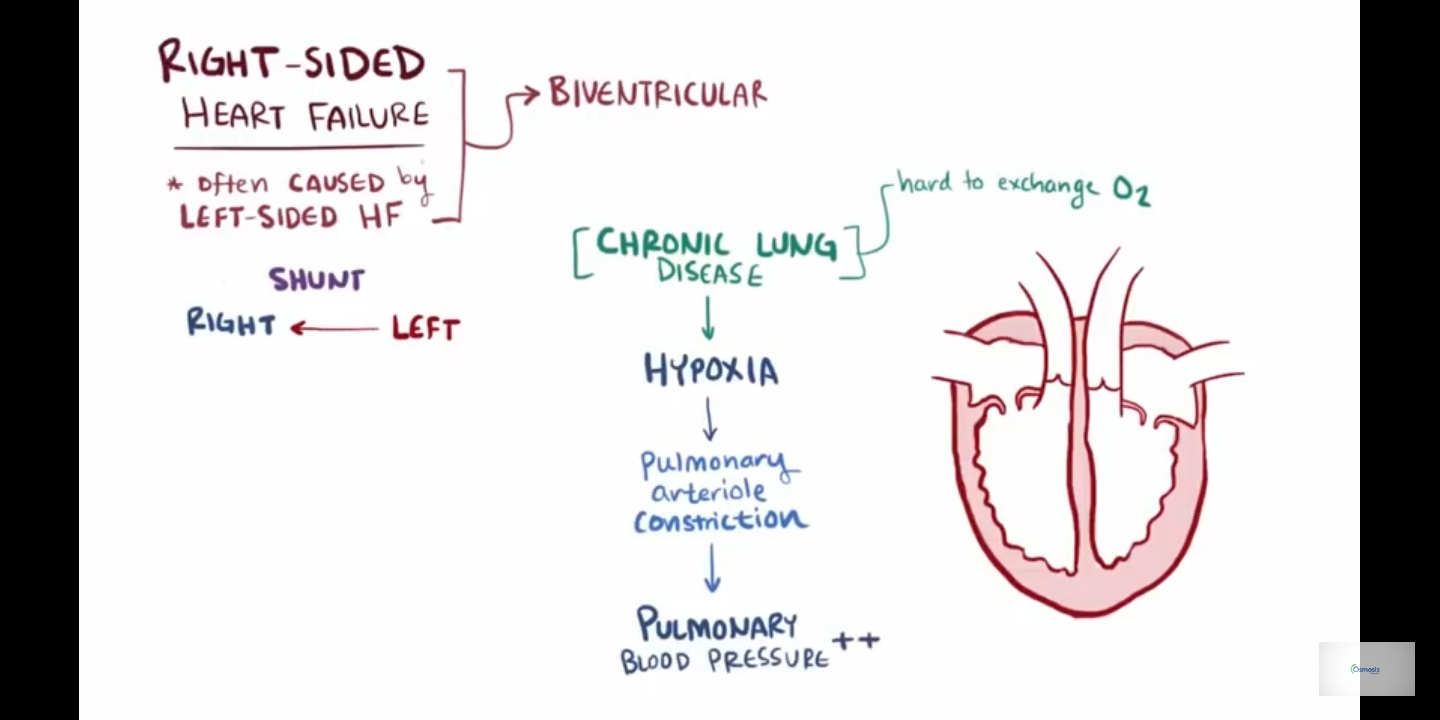 RIGHT-SIDED
HEART FAILURE
* often CAUSED by
LEFT-SIDED HF
BIVENTRICULAR
SHUNT
RIGHT ← LEFT
hard to exchange O₂
[CHRONIC LUNG
DISEASE]
HYPOXIA
Pulmonary
arteriole
constriction
PULMONARY
BLOOD PRESSURE ++
Osmosis